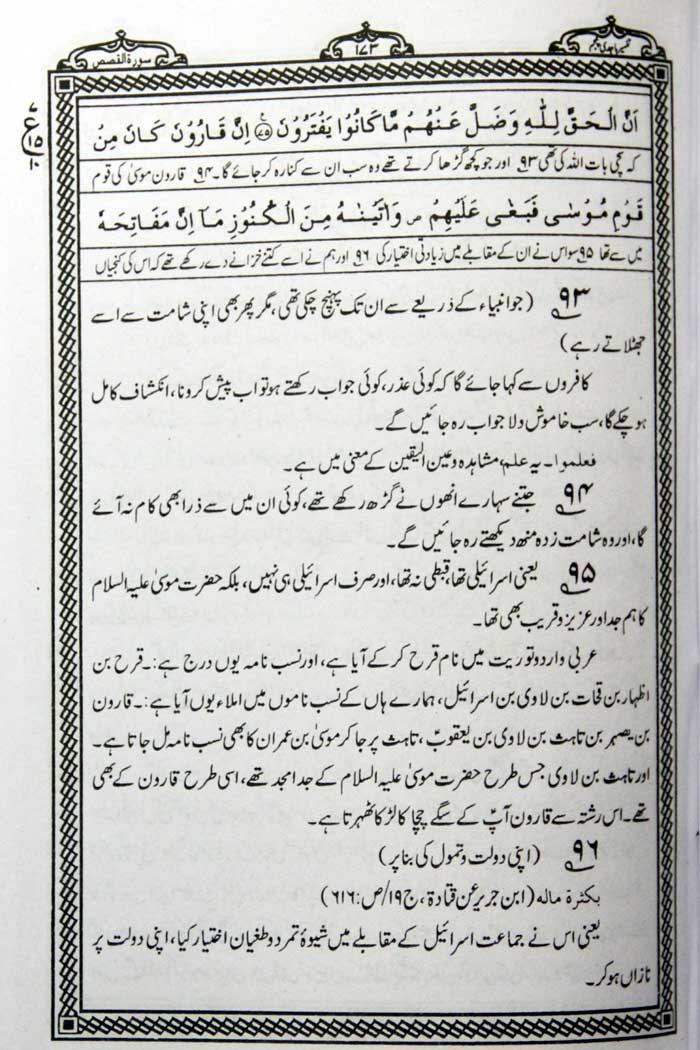 تفسیر ماجدی پنجم
۱۷۳
سورۃ القصص
ع
۱۵
۱۰
اَنَّ الْحَقَّ لِلّٰهِ وَضَلَّ عَنْهُمْ مَّا كَانُوْا يَفْتَرُوْنَ ۷۵ اِنَّ قَارُوْنَ كَانَ مِنْ
کہ سچی بات اللہ کی تھی ۹۳ اور جو کچھ گڑھا کرتے تھے وہ سب ان سے کنارہ کر جائے گا۔ ۹۴ قارون موسیٰ کی قوم
قَوْمِ مُوْسٰى فَبَغٰى عَلَيْهِمْ ص وَاٰتَيْنٰهُ مِنَ الْكُنُوْزِ مَآ اِنَّ مَفَاتِحَهٗ
میں سے تھا ۹۵ سو اس نے ان کے مقابلے میں زیادتی اختیار کی ۹۶ اور ہم نے اسے کتنے خزانے دے رکھے تھے کہ اس کی کنجیاں
۹۳ (جو انبیاء کے ذریعے سے ان تک پہنچ چکی تھی، مگر پھر بھی اپنی شامت سے اسے
جھٹلاتے رہے)
کافروں سے کہا جائے گا کہ کوئی عذر، کوئی جواب رکھتے ہو تو اب پیش کرو نا، انکشاف کامل
ہو چکے گا، سب خاموش و لا جواب رہ جائیں گے۔
فعلموا۔ یہ علم، مشاہدہ وعین الیقین کے معنی میں ہے۔
۹۴ جتنے سہارے انھوں نے گڑھ رکھے تھے، کوئی ان میں سے ذرا بھی کام نہ آئے
گا، اور وہ شامت زدہ منھ دیکھتے رہ جائیں گے۔
۹۵ یعنی اسرائیلی تھا، قبطی نہ تھا، اور صرف اسرائیلی ہی نہیں، بلکہ حضرت موسیٰ علیہ السلام
کا ہم جد اور عزیز و قریب بھی تھا۔
عربی واردو توریت میں نام قرح کر کے آیا ہے، اور نسب نامہ یوں درج ہے:۔ قرح بن
اظہار بن قحات بن لاوی بن اسرائیل، ہمارے ہاں کے نسب ناموں میں املاء یوں آیا ہے:۔ قارون
بن یصہر بن تاہث بن لاوی بن یعقوبؑ، تاہث پر جا کر موسیٰ بن عمران کا بھی نسب نامہ مل جاتا ہے۔
اور تاہث بن لاوی جس طرح حضرت موسیٰ علیہ السلام کے جدامجد تھے، اسی طرح قارون کے بھی
تھے۔ اس رشتہ سے قارون آپؑ کے سگے چچا کا لڑکا ٹھہرتا ہے۔
۹۶ (اپنی دولت و تمول کی بنا پر)
بکثرة ماله (ابن جریر عن قتادة، ج۱۹/ص:۶۱۶)
یعنی اس نے جماعت اسرائیل کے مقابلے میں شیوۂ تمرد وطغیان اختیار کیا، اپنی دولت پر
نازاں ہو کر۔